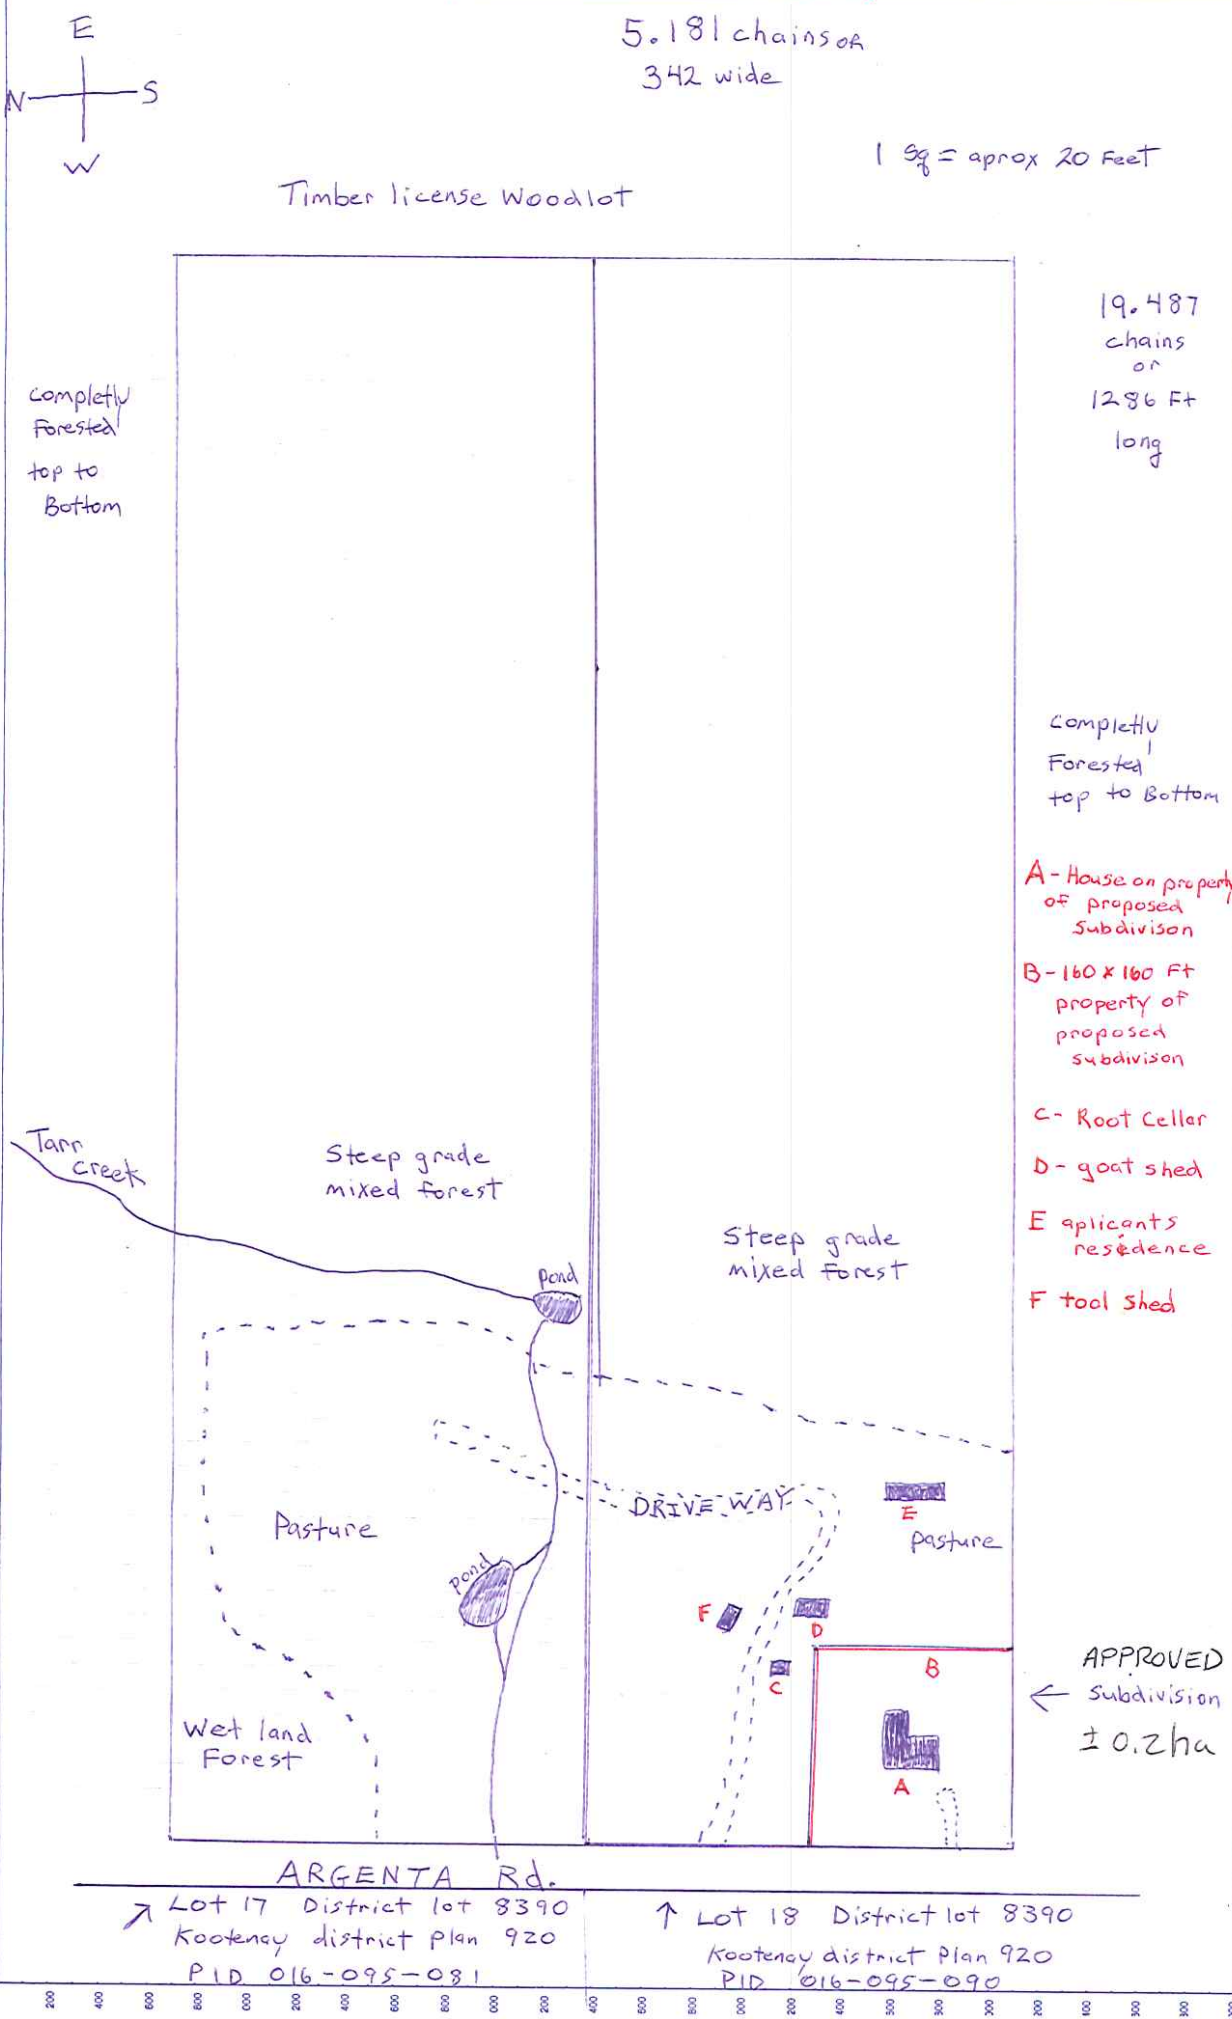 E
N S
W
5.181 chains or
342 wide
1 sq = aprox 20 Feet
Timber license Woodlot
19.487
chains
or
1286 Ft
long
Completly
Forested
top to
Bottom
Completly
Forested
top to Bottom
A - House on property
of proposed
Subdivison
B - 160 x 160 Ft
property of
proposed
subdivison
C - Root Cellar
D - goat shed
E aplicants
residence
F tool shed
Tarr
Creek
Steep grade
mixed forest
Steep grade
mixed forest
Pond
DRIVE WAY
E
Pasture
Pasture
Pond
F
D
C
B
A
APPROVED
← Subdivision
± 0.2ha
Wet land
Forest
ARGENTA Rd.
↗ Lot 17 District lot 8390
Kootenay district Plan 920
PID 016-095-081
↑ Lot 18 District lot 8390
Kootenay district Plan 920
PID 016-095-090